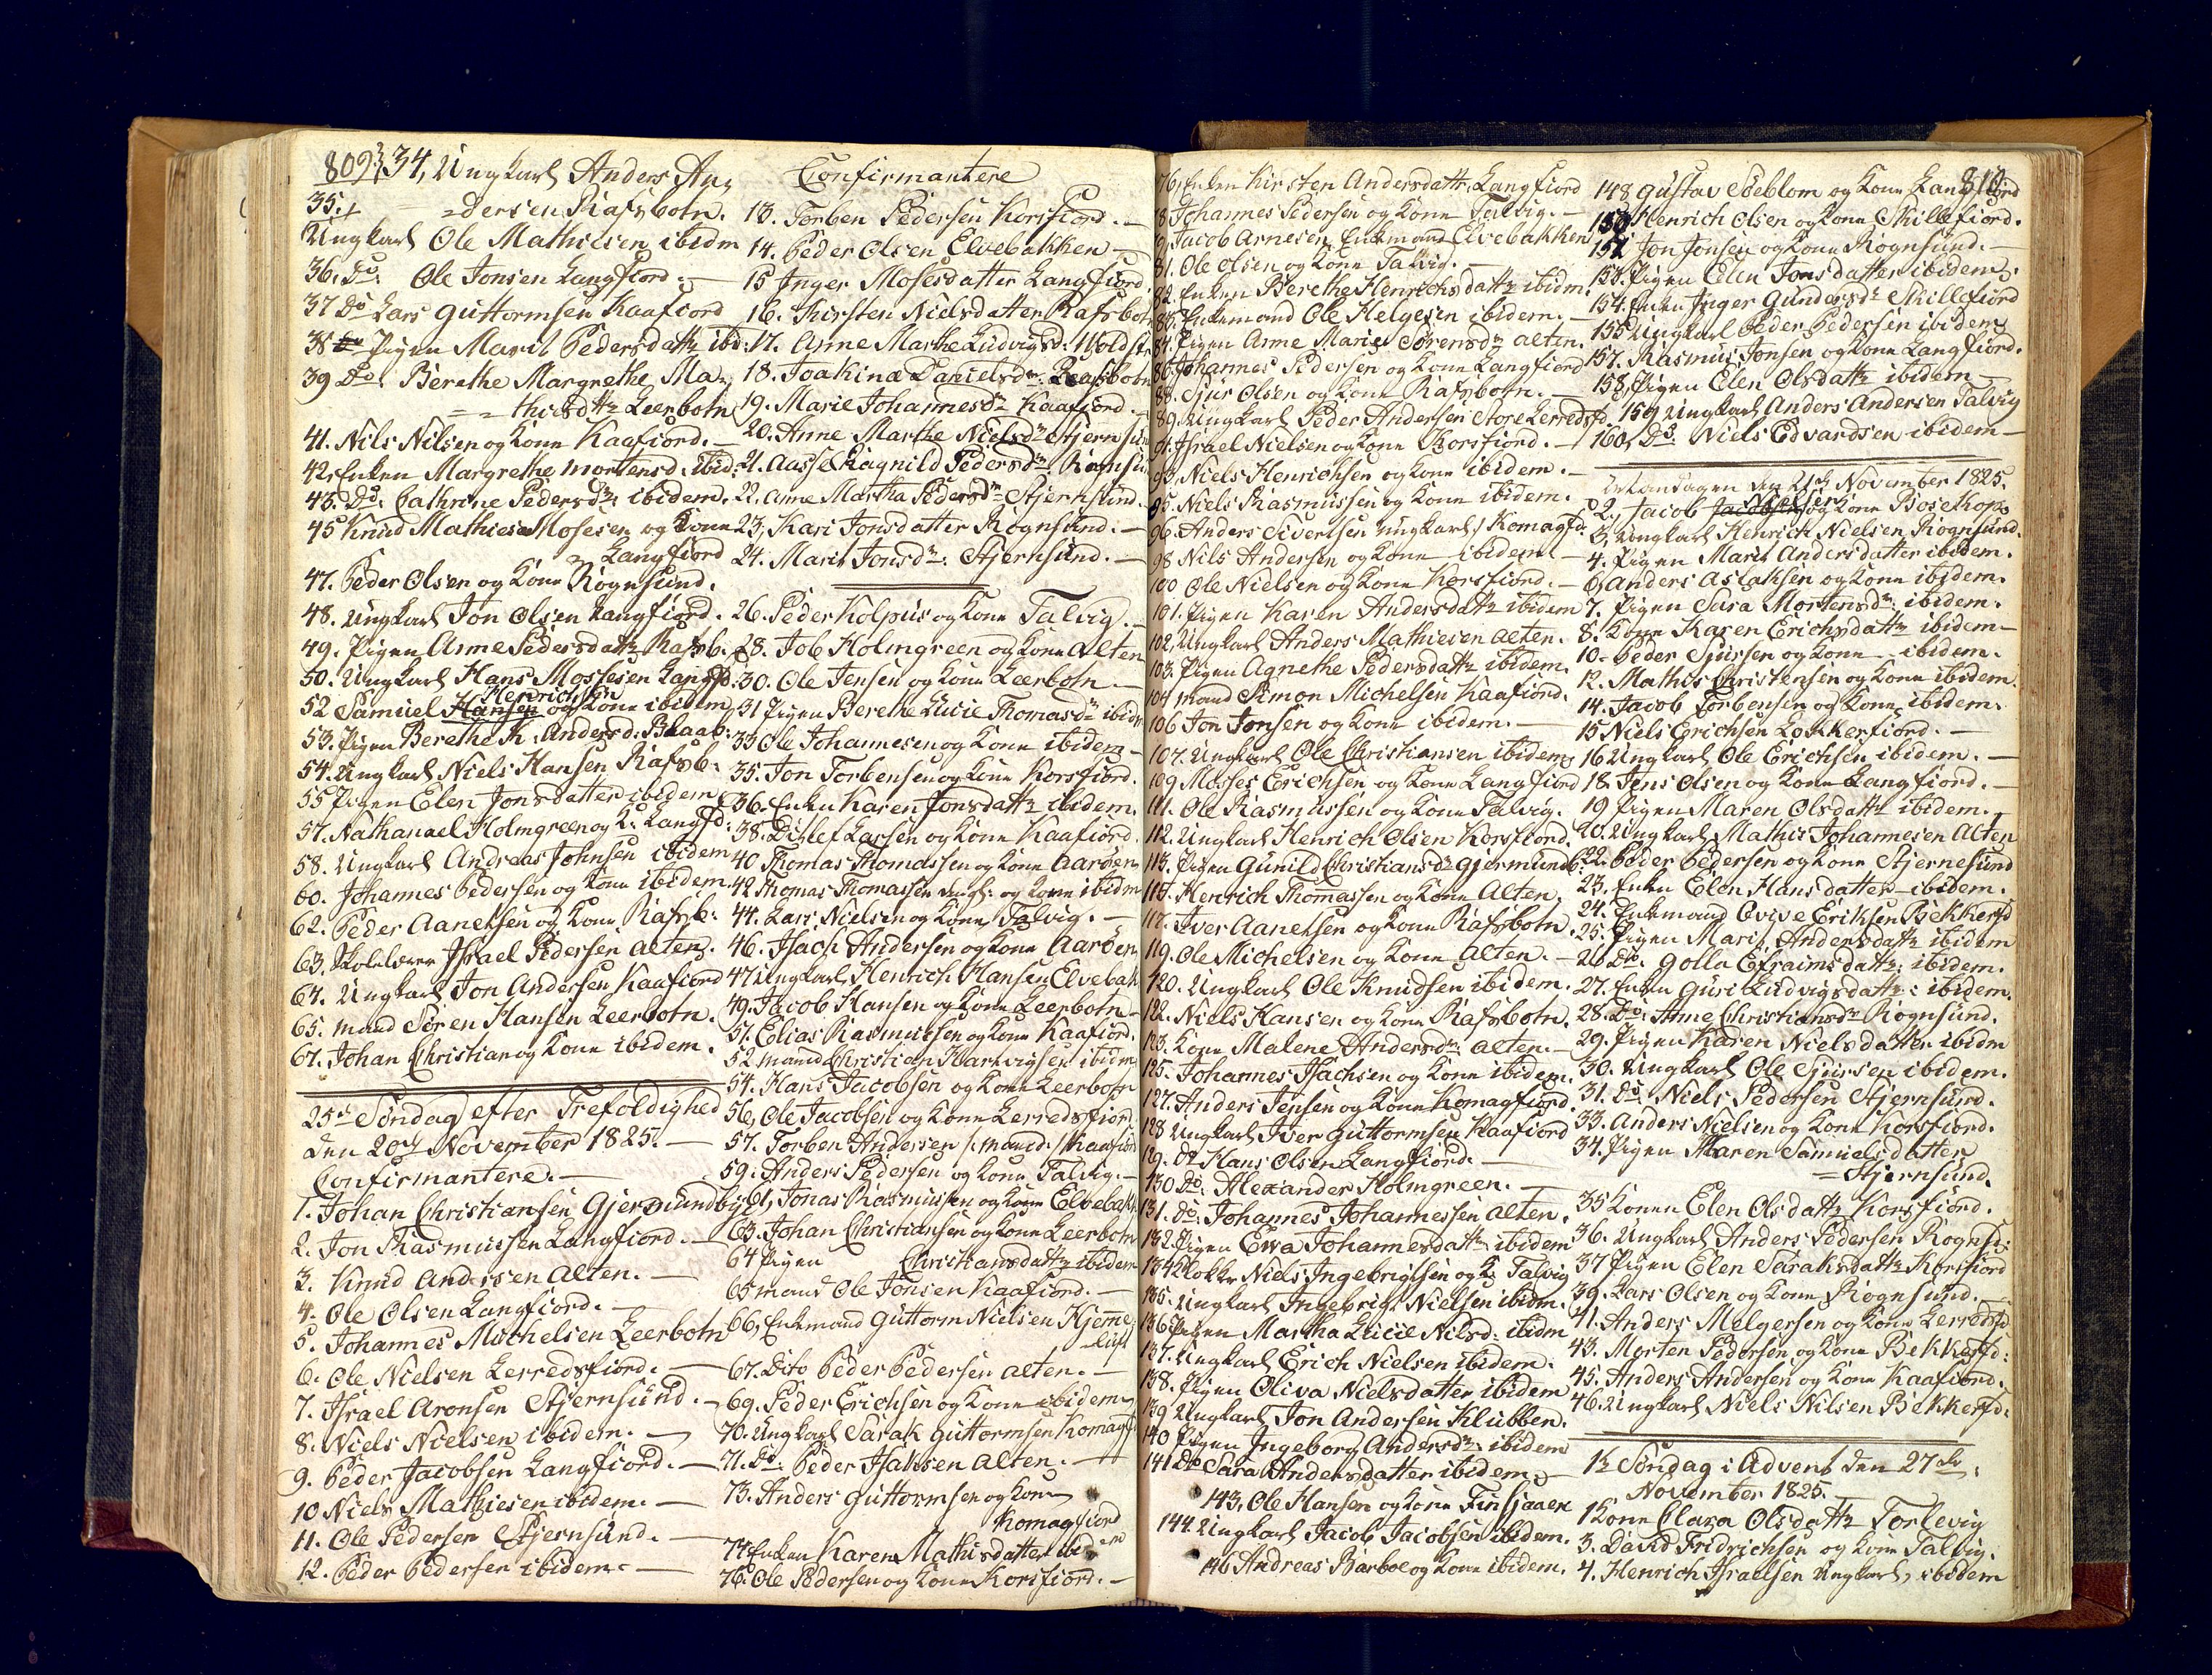 809
34, Ungkarl Anders An,
35.
=dersen Rafsbotn.
Ungkarl Ole Mathiesen ibidm
36. Do: Ole Jonsen Langfiord.—
37 Do Lars Guttormsen Kaafiord
38 Pigen Marit Pedersdattr ibid:
39 Do: Berethe Margrethe Ma,
= = thisdtr Leerbotn
41. Nils Nilsen og Kone Kaafiord.—
42. Enken Margrethe Mortensd. ibid:
43. Do: Cathrine Pedersdr: ibidem.
45 Knud Mathies Mosesen og Kone
Langfiord
47. Peder Olsen og Kone Rognsund.
48. Ungkarl Jon Olsen Langfiord.
49. Pigen Anne Pedersdattr Rafsb.
50. Ungkarl Hans Mosesen Langfd:
Henrichsen
52 Samuel Hansen og Kone ibidem
53. Pigen Berethe M: Andersd:
54. Ungkarl Niels Hansen Rafsb:
55 Pigen Elen Jonsdatter ibidem
57. Nathanael Holmgreen og K: Langfd:
58. Ungkarl Andreas Johnsen ibidem
60. Johannes Pedersen og Kone ibidem
62. Peder Aanetsen og Kone Rafsb:
63. Skolelærer Israel Pedersen Alten.
64. Ungkarl Jon Andersen Kaafiord
65. Mand Søren Hansen Leerbotn.
67. Johan Christian og Kone ibidem.
25de Søndag efter Trefoldighed
den 20de November 1825.—
Confirmantere.—
1. Johan Christiansen Gjermundbye
2. Jon Rasmussen Langfiord.—
3. Knud Andersen Alten.—
4. Ole Olsen Langfiord.—
5. Johannes Michelsen Leerbotn
6. Ole Nielsen Lerredsfiord.—
7. Israel Aronsen Stjernsund.—
8. Niels Nielsen ibidem.—
9. Peder Jacobsen Langfiord.—
10 Niels Mathiesen ibidem.—
11. Ole Pedersen Stjernsund.—
12. Peder Pedersen ibidem.—
Confirmantere
13. Torben Pedersen Korsfiord.—
14. Peder Olsen Elvebakken—
15 Inger Mosesdatter Langfiord.
16. Kirsten Nielsdatter Rafsbotn
17. Anne Marthe Ludvigsd:
18. Joakina Danielsdr. Rafsbotn
19. Marie Johannesdr Kaafiord.
20. Anne Marthe Nielsdr Stjernsund
21. Aasse Ragnild Pedersdr Rognsund
22. Anne Martha Pedersdr Stjernsund.
23, Kari Jonsdatter Rognsund.—
24. Marit Jonsdr: Stjernsund.—
26. Peder Kolpus og Kone Talvig.—
28. Job Holmgreen og Kone Alten
30. Ole Jensen og Kone Leerbotn—
31 Pigen Berethe Lucie Thomasdr ibidm
33 Ole Johannesen og Kone ibidem—
35. Jon Torbensen og Kone Korsfiord.
36. Enken Karen Jonsdattr ibidem.
38. Ditlef Larsen og Kone Kaafiord.
40 Thomas Thomassen og Kone Aarøen
42 Thomas Thomassen og Kone ibidm
44. Lars Nielsen og Kone Talvig.—
46. Isach Andersen og Kone Aarøen
47 Ungkarl Henrich Hansen Elvebak
49. Jacob Hansen og Kone Leerbotn—
51. Elias Rasmussen og Kone Kaafiord.
52 Mand Christian Hartvigsen ibidm
54. Hans Jacobsen og Kone Leerbotn
56, Ole Jacobsen og Kone Lerredsfiord
57. Torben Andersen /:Mand:/ Kaafiord
59. Anders Pedersen og Kone Talvig.—
61, Jonas Rasmussen og Kone Elvebakk
63. Johan Christiansen og Kone Leerbotn
64 Pigen Christiansdattr ibidem
65 Mand Ole Jonsen Kaafiord.—
66, Enkemand Guttorm Nielsen Hjemme,
luft
67. Dito Peder Pedersen Alten.—
69. Peder Erichsen og Kone ibidem
70. Ungkarl Sarak Guttormsen Komagf
71. Do: Peder Isaksen Alten.—
73. Anders Guttormsen og Kone
Komagfiord
74 Enken Karen Mathisdatter ibidem
76. Ole Pedersen og Kone Korsfiord.—
810
76, Enken Kirsten Andersdattr. Langfiord
78 Johannes Pedersen og Kone Talvig.—
79, Jacob Arnesen Enkemand Elvebakken
81. Ole Olsen og Kone Talvig.—
82. Enken Berethe Henrichsdattr ibidm.
83. Enkemand Ole Helgesen ibidem.—
84. Pigen Anne Marie Sørensdr Alten.
86. Johannes Pedersen og Kone Langfiord
88. Sjur Olsen og Kone Rafsbotn.—
89. Ungkarl Peder Andersen Store Lerredsfd.
91. Israel Nielsen og Kone Korsfiord.—
93, Niels Henrichsen og Kone ibidem.—
95. Niels Rasmussen og Kone ibidem.
96. Anders Sivertsen Ungkarl, Komagfd.
98 Nils Andersen og Kone ibidem—
100 Ole Nielsen og Kone Korsfiord.—
101. Pigen Karen Andersdattr ibidem
102, Ungkarl Anders Mathiesen Alten.
103. Pigen Agnethe Pedersdattr ibidem.
104 Mand Simon Michelsen Kaafiord.
106 Jon Jonsen og Kone ibidem.—
107. Ungkarl Ole Christiansen ibidem
109 Moses Erichsen og Kone Langfiord
111. Ole Rasmussen og Kone Talvig.
112. Ungkarl Henrich Olsen Korsfiord.
113. Pigen Gunild Christiansdr Gjermundb:
115. Henrich Thomassen og Kone Alten.
117. Iver Aanetsen og Kone Rafsbotn.
119. Ole Michelsen og Kone Alten.—
120. Ungkarl Ole Knudsen ibidem.
122. Niels Hansen og Kone Rafsbotn.
123. Kone Malene Andersdr: Alten.—
125. Johannes Isachsen og Kone ibidem.
127. Anders Jepsen og Kone Komagfiord.
128 Ungkarl Iver Guttormsen Kaafiord
129. Do Hans Olsen Langfiord.—
130 Do: Alexander Holmgreen.—
131. Do: Johannes Johannessen Alten.
132. Pigen Ewa Johannesdattr ibidem
134 Klokker Niels Ingebrigtsen og K: Talvig
135. Ungkarl Ingebrigt Nielsen ibidm.
136 Pigen Martha Lucie Nilsd: ibidm
137. Ungkarl Erich Nielsen ibidem.
138. Pigen Oliva Nielsdatter ibidem
139 Ungkarl Jon Andersen Klubben.
140 Pigen Ingeborg Andersdr: ibidem
141 Do Sara Andersdatter ibidem.
143. Ole Hansen og Kone Finsjaaen
144. Ungkarl Jacob Jacobsen ibidem.
146 Andreas Barboe og Kone ibidem.
148 Gustav Søeblom og Kone Langfiord
150 Henrich Olsen og Kone Skillefiord.
152 Jon Jonsen og Kone Rognsund.—
153. Pigen Elen Jonsdatter ibidem.
154. Enken Inger Gundersdr Skillefiord
155 Ungkarl Peder Pedersen ibidem
157. Rasmus Jonsen og Kone Langfiord.
158, Pigen Elen Olsdattr ibidem—
159 Ungkarl Anders Andersen Talvig
160, Do. Niels Edvardsen ibidem—
Mandagen den 21de November 1825.
Nielsen
2, Jacob Jacobsen og Kone Bosekop.
3, Ungkarl Henrich Nielsen Rognsund.
4. Pigen Marit Andersdatter ibidem.
6, Anders Aslaksen og Kone ibidem.
7. Pigen Sara Mortensdr: ibidem.
8. Kone Karen Erichsdattr ibidem—
10. Peder Sjursen og Kone — ibidem.
12. Mathis Christensen og Kone ibidem.
14. Jacob Torbensen og Kone ibidem.
15 Niels Erichsen Lokkerfiord.—
16 Ungkarl Ole Erichsen ibidem.—
18. Jens Olsen og Kone Langfiord.—
19 Pigen Maren Olsdattr ibidem.
20. Ungkarl Mathis Johannesen Alten
22. Peder Pedersen og Kone Stjernesund
23. Enken Elen Hansdatter ibidem.
24. Enkemand Qvive Eriksen Bekkerfd
25. Pigen Marit Andersdattr ibidem
26 Do. Golla Efraimsdattr: ibidem.
27. Enken Guri Ludvigsdattr: ibidem.
28. Do: Anne Christiansdr Rognsund.
29. Pigen Karen Nielsdatter ibidm
30. Ungkarl Ole Sjursen ibidem.
31. Do: Niels Pedersen Stjernsund.
33. Anders Nielsen og Kone Korsfiord.
34. Pigen Maren Samuelsdatter
= Stjernsund.
35 Konen Elen Olsdattr Korsfiord.
36. Ungkarl Anders Pedersen Rognsd:
37 Pigen Elen Saraksdattr Korsfiord
39. Lars Olsen og Kone Rognsund.—
41. Anders Melgersen og Kone Lerredsfd
43. Morten Pedersen og Kone Bekkerfd:
45. Anders Andersen og Kone Kaafiord.
46. Ungkarl Niels Nilsen Bekkerfd:
1te Søndag i Advent den 27de
November 1825.—
1 Kone Clara Olsdattr Torlevig
3. David Fridrichsen og Kone Talvig.
4. Henrich Israelsen Ungkarl, ibidem